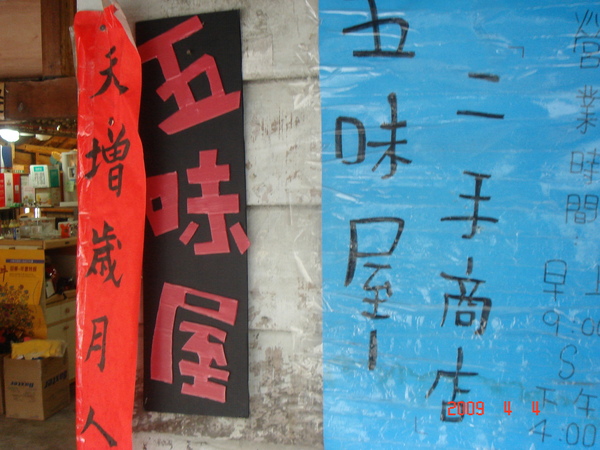 天增歲月人
五味屋
五味屋-
二手商店
營業時間:
早上
9:00
S
下午
4:00
2009 4 4